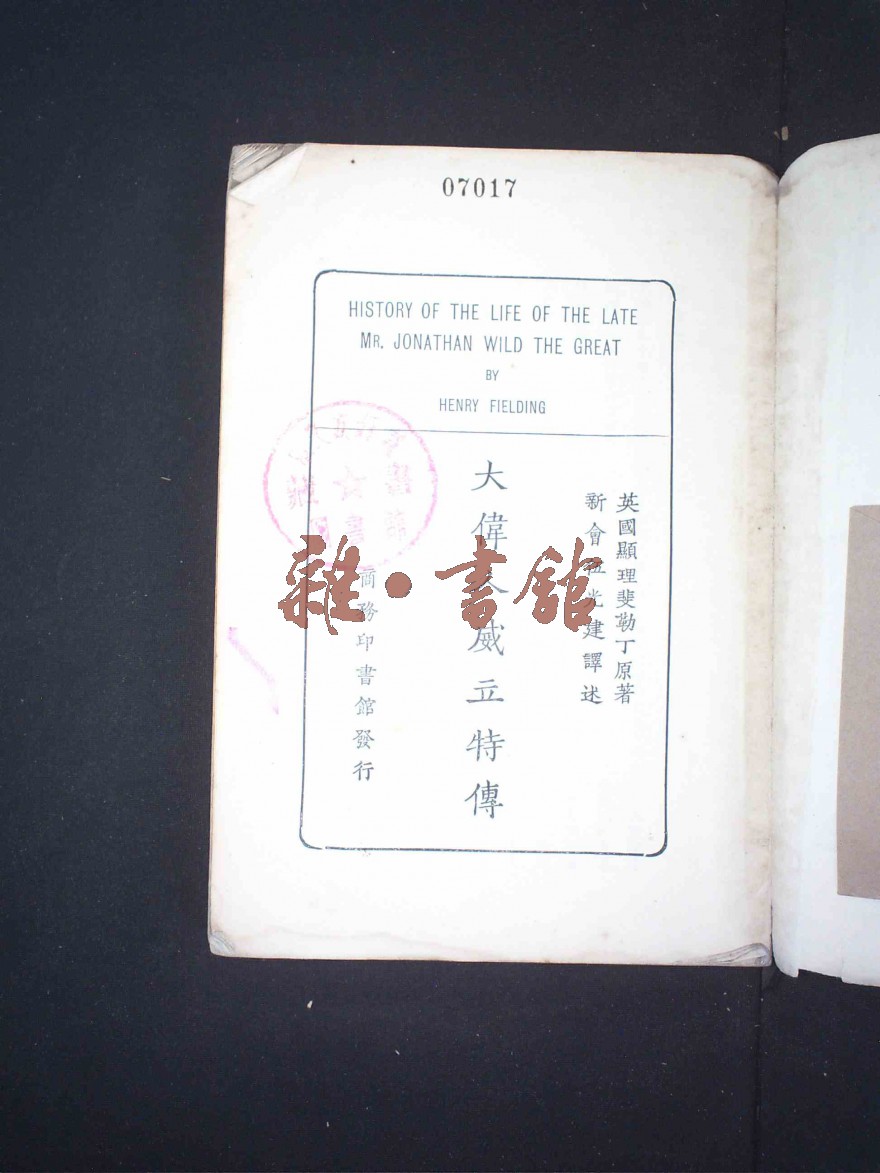 07017
HISTORY OF THE LIFE OF THE LATE
MR. JONATHAN WILD THE GREAT
BY
HENRY FIELDING
英國顯理斐勒丁原著
新會伍光建譯述
大偉人威立特傳
商務印書館發行
雜·書館